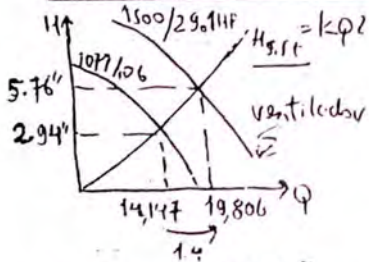 H
1500/29.1HP
H sist = KQ2
1077/.06
5.76"
ventilador
2.94"
14,147 19,806 Q
1.4